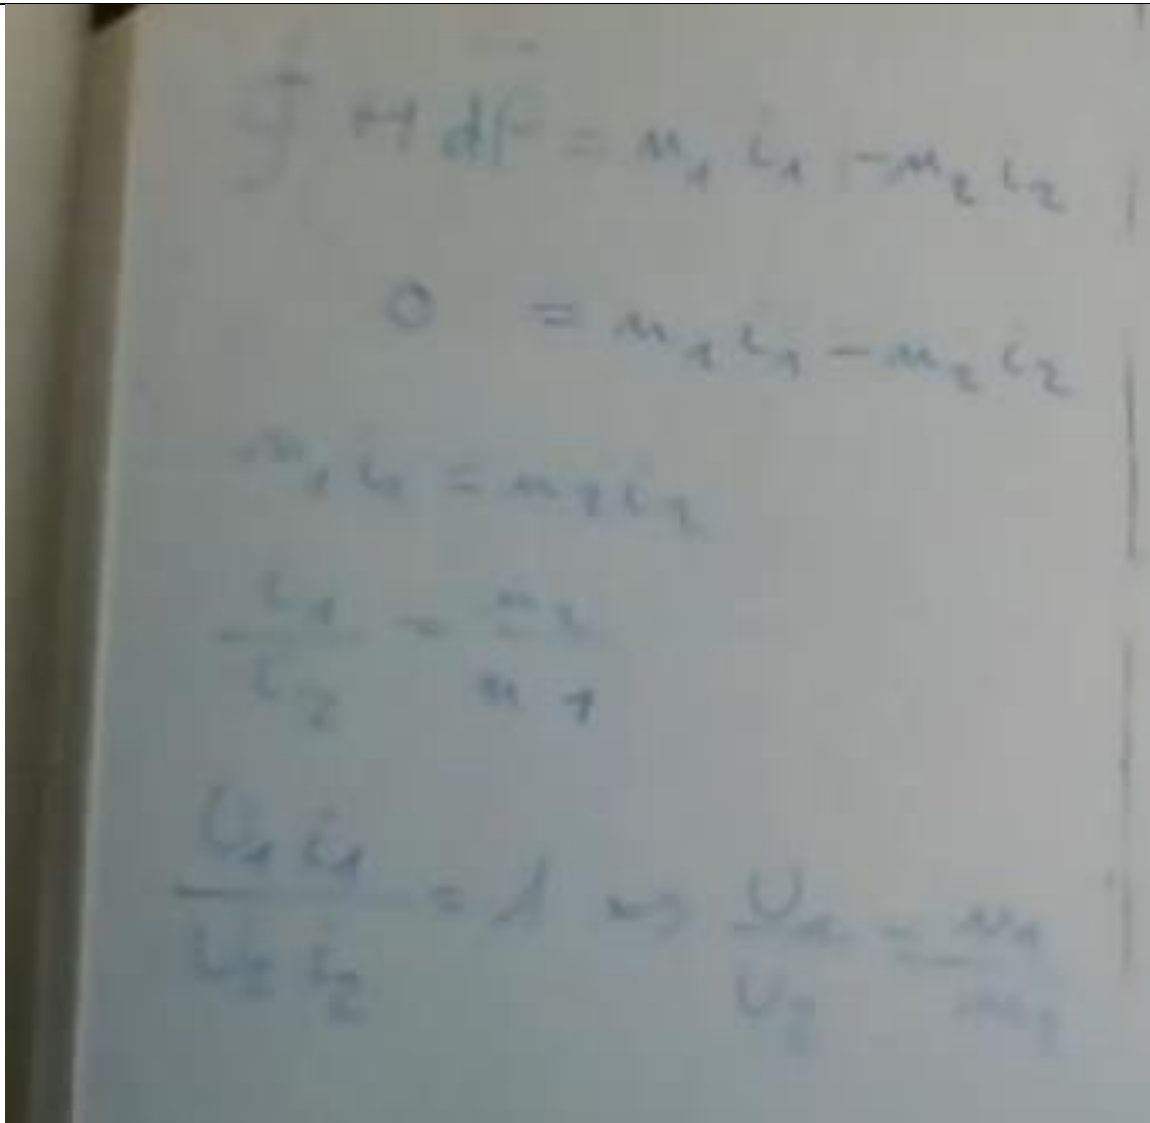 ∮ H df = n₁ i₁ - n₂ i₂
0 = n₁ i₁ - n₂ i₂
n₁ i₁ = n₂ i₂
i₁ / i₂ = n₂ / n₁
U₁ i₁ / U₂ i₂ = 1 => U₁ / U₂ = n₁ / n₂